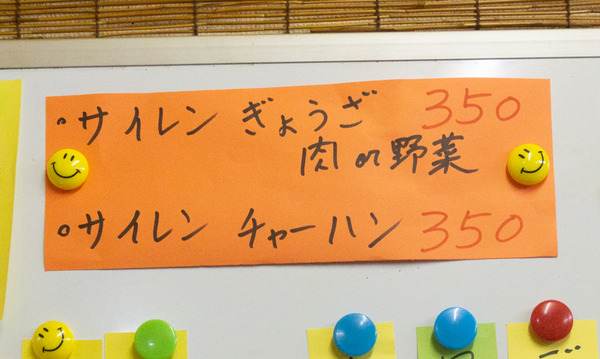 ・サイレン ぎょうざ 350
肉or野菜
・サイレン チャーハン 350